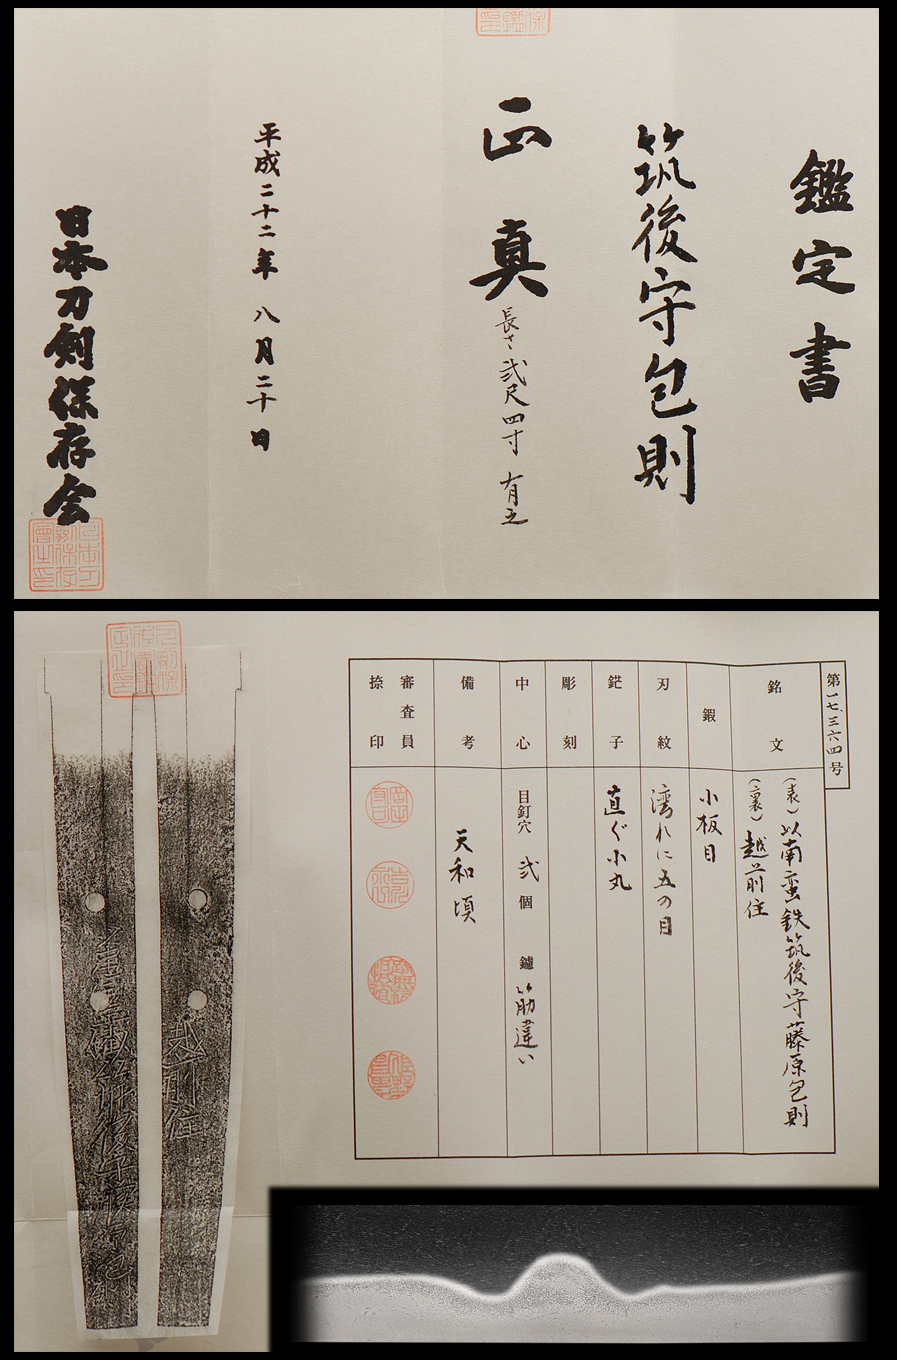 鑑定書
筑後守包則
正真
長さ弐尺四寸有之
平成二十二年八月二十日
日本刀剣保存会
第一七三六四号
銘文
(表)以南蛮鉄筑後守藤原包則
(裏)越前住
鍜
小板目
刃紋
湾れに五の目
鋩子
直ぐ小丸
彫刻
中心
目釘穴 弐個 鑢 筋違い
備考
天和頃
審査員
捺印
越前住